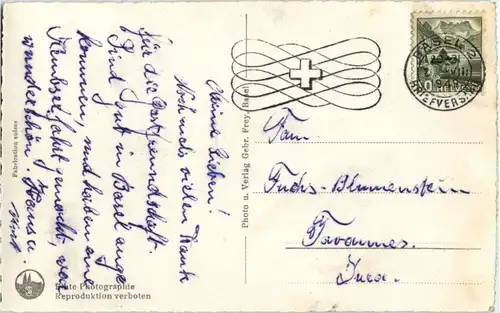 Meine Lieben!
Noch mals vielen Dank
für die Gastfreundschaft.
Sind gut in Basel ange
kommen, und haben eine
gemacht, war
wunderschön. Hans u.
Fabrication suisse
Photo u. Verlag Gebr. Frey, Basel
Echte Photographie
Reproduktion verboten
BASEL 2
BRIEFVERSAND
HELVETIA
Fam.
Fuchs-Blumenstein
Tavannes.
Jura.